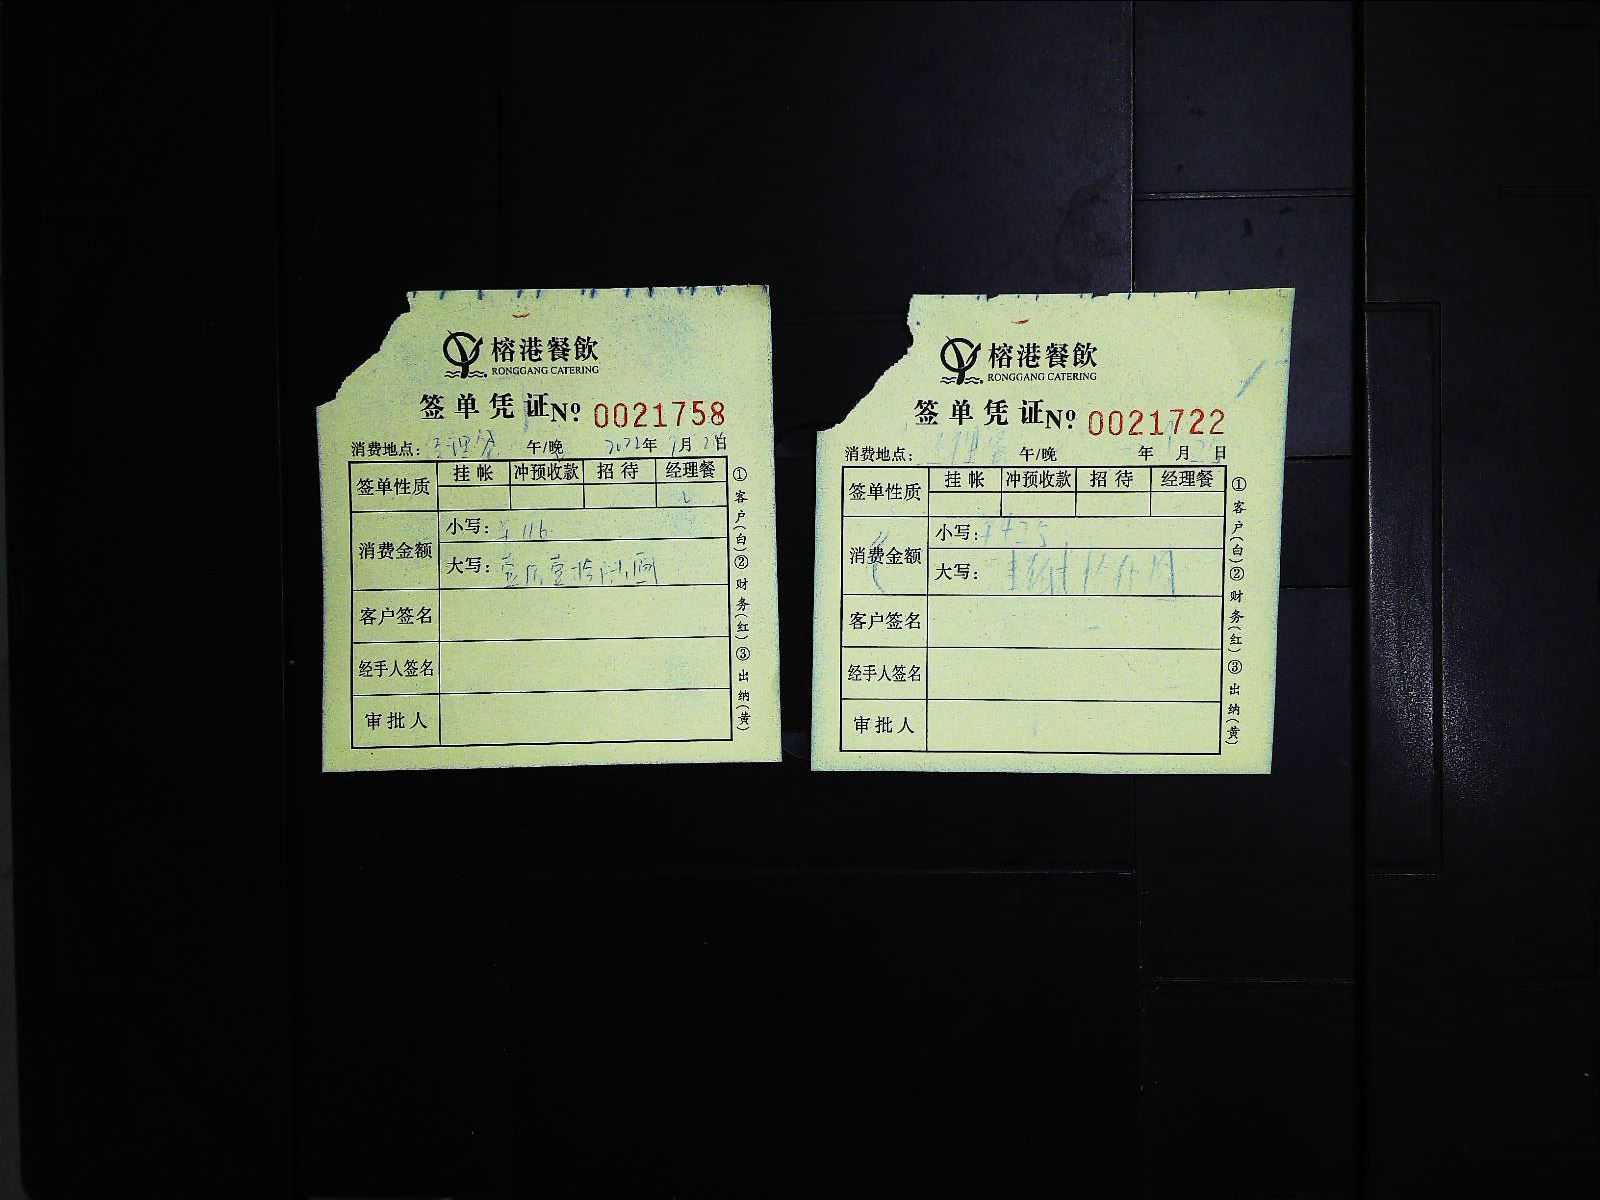 榕港餐飲
RONGGANG CATERING
签单凭证 Nº 0021758
消费地点： 经理餐 午/晚 2022年9月2日
签单性质 挂帐 冲预收款 招待 经理餐
消费金额 小写：¥116
大写：壹佰壹拾陆圆
客户签名
经手人签名
审批人
①客户(白)②财务(红)③出纳(黄)
榕港餐飲
RONGGANG CATERING
签单凭证 Nº 0021722
消费地点： 午/晚 年 月 日
签单性质 挂帐 冲预收款 招待 经理餐
消费金额 小写：
大写：
客户签名
经手人签名
审批人
①客户(白)②财务(红)③出纳(黄)